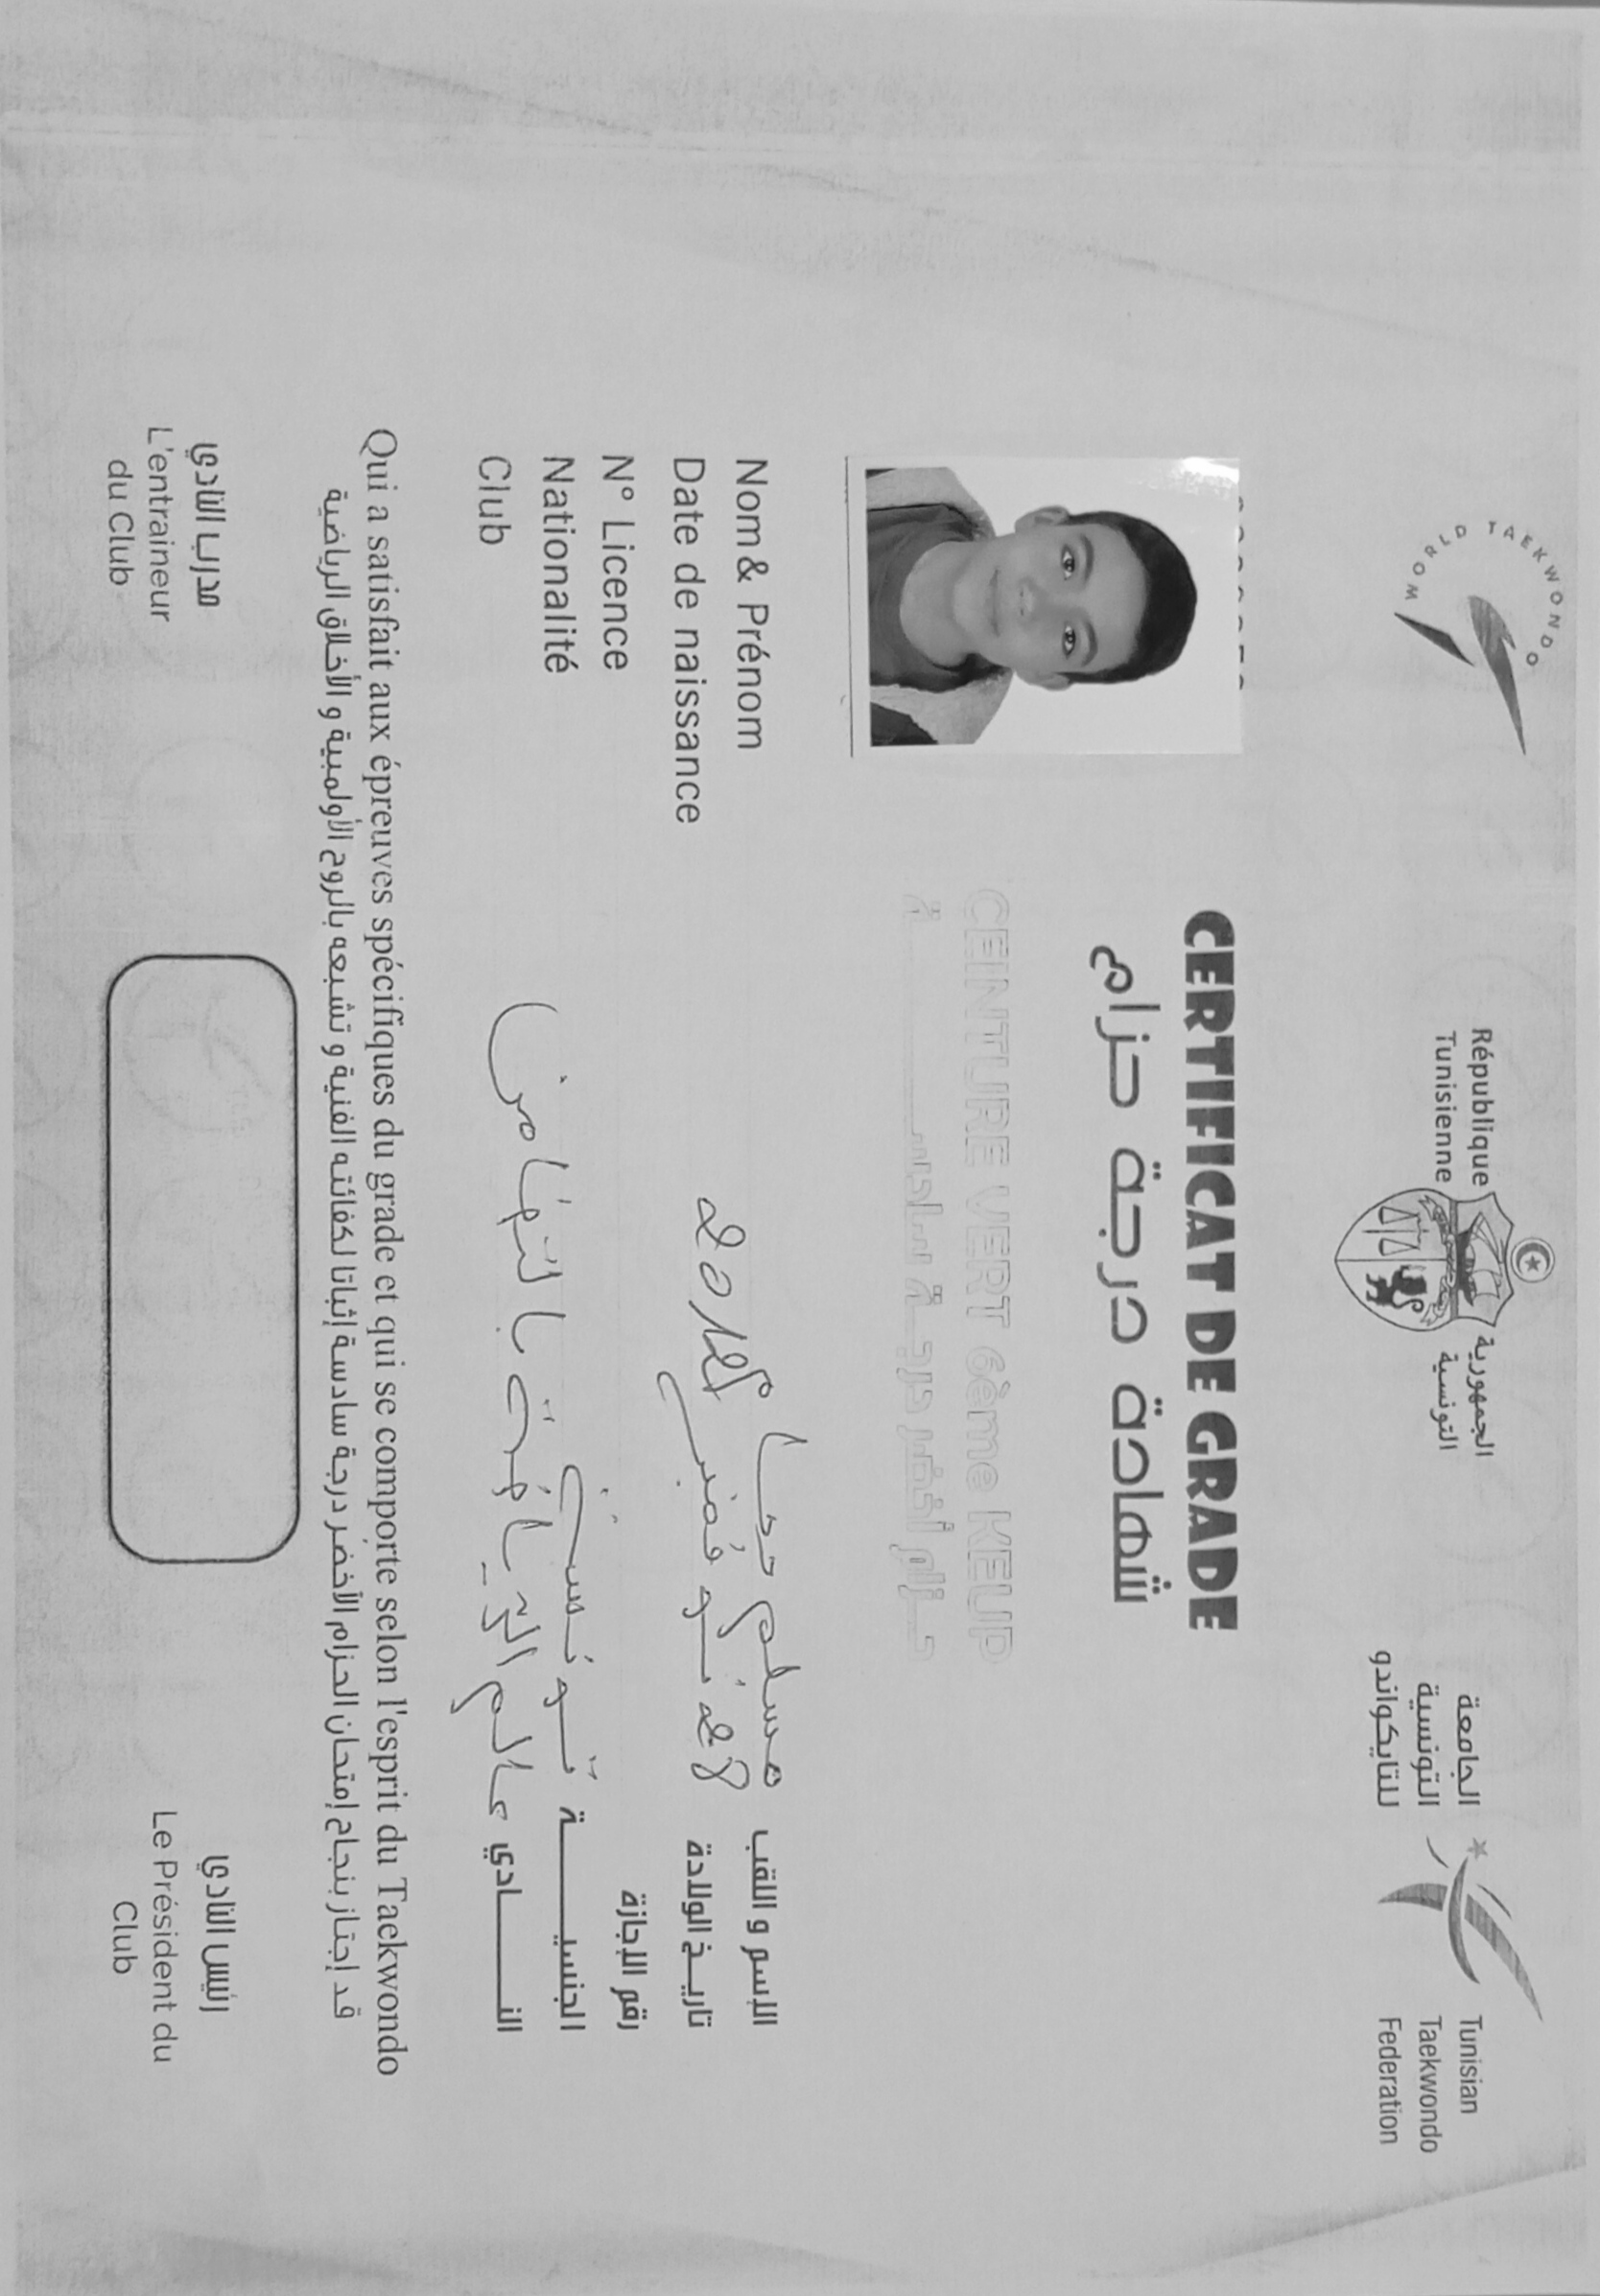 WORLD TAEKWONDO
République
Tunisienne
الجمهورية
التونسية
الجامعة
التونسية
للتايكواندو
Tunisian
Taekwondo
Federation
CERTIFICAT DE GRADE
شهادة درجة حزام
CEINTURE VERT 6ème KEUP
حـزام أخضر درجـة سـادسـة
Nom& Prénom مسلم الإسم و اللقب
Date de naissance 08 نوفمبر تاريـخ الولادة
N° Licence رقم الإجازة
Nationalité تونسي الجنسيـة
Club عالم الرياضة بالتضامن النـادي
Qui a satisfait aux épreuves spécifiques du grade et qui se comporte selon l'esprit du Taekwondo
قد إجتاز بنجاح إمتحان الحزام الأخضر درجة سادسة إثباتا لكفائته الفنية و تشبعه بالروح الأولمبية و الأخلاق الرياضية
مدرب النادي
L'entraineur
du Club
رئيس النادي
Le Président du
Club